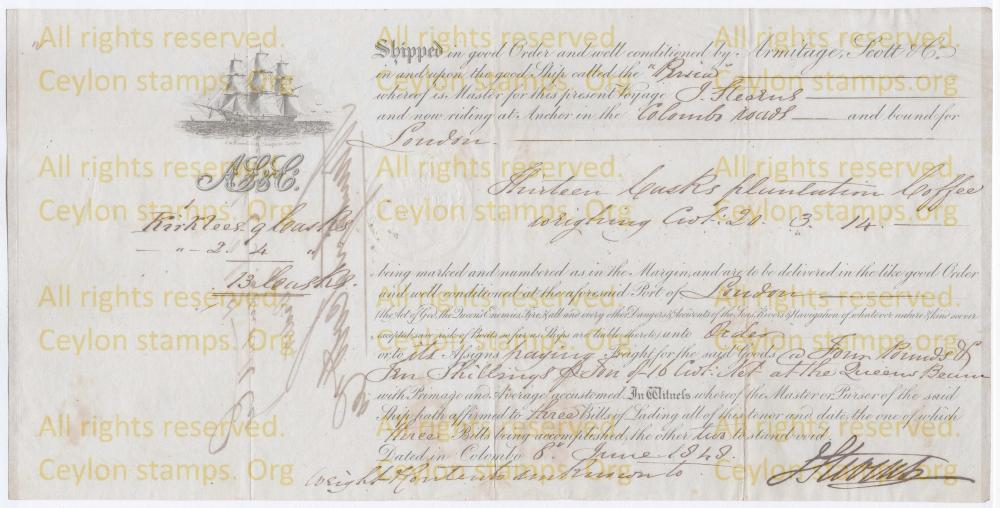 Shipped in good Order and well conditioned by Armitage, Scott & Co.
in and upon the good Ship called the "Persia"
whereof is Master for this present Voyage J. Stearns
and now riding at Anchor in the Colombo roads and bound for
London.
Thirteen Casks plantation Coffee
weighing Cwt. 20. 3. 14.
Kirklees 9 Casks
— " — 2. 4 "
13 Casks.
being marked and numbered as in the Margin, and are to be delivered in the like good Order
and well conditioned at the aforesaid Port of London
(the Act of God, the Queen's Enemies, Fire & all and every other Dangers & Accidents of the Seas, Rivers & Navigation of whatever nature & kind soever
excepted, save risk of Boats so far as Ships are liable thereto) unto Order
or to its Assigns paying Freight for the said Goods @ Four Pounds &
Ten Shillings p Ton of 16 Cwt. Net at the Queens Beam
with Primage and Average accustomed. In Witness whereof the Master or Purser of the said
Ship hath affirmed to three Bills of Lading all of this tenor and date, the one of which
three Bills being accomplished, the other two to stand void.
Dated in Colombo 8th June 1848.
Weight & Contents unknown to
All rights reserved.
Ceylon stamps. Org
All rights reserved.
Ceylon stamps. Org
All rights reserved.
Ceylon stamps. Org
All rights reserved.
Ceylon stamps. Org
All rights reserved.
Ceylon stamps. Org
All rights reserved.
Ceylon stamps. Org
All rights reserved.
Ceylon stamps. Org
All rights reserved.
Ceylon stamps. Org
All rights reserved.
Ceylon stamps. Org
All rights reserved.
Ceylon stamps. Org
All rights reserved.
Ceylon stamps. Org
All rights reserved.
Ceylon stamps. Org